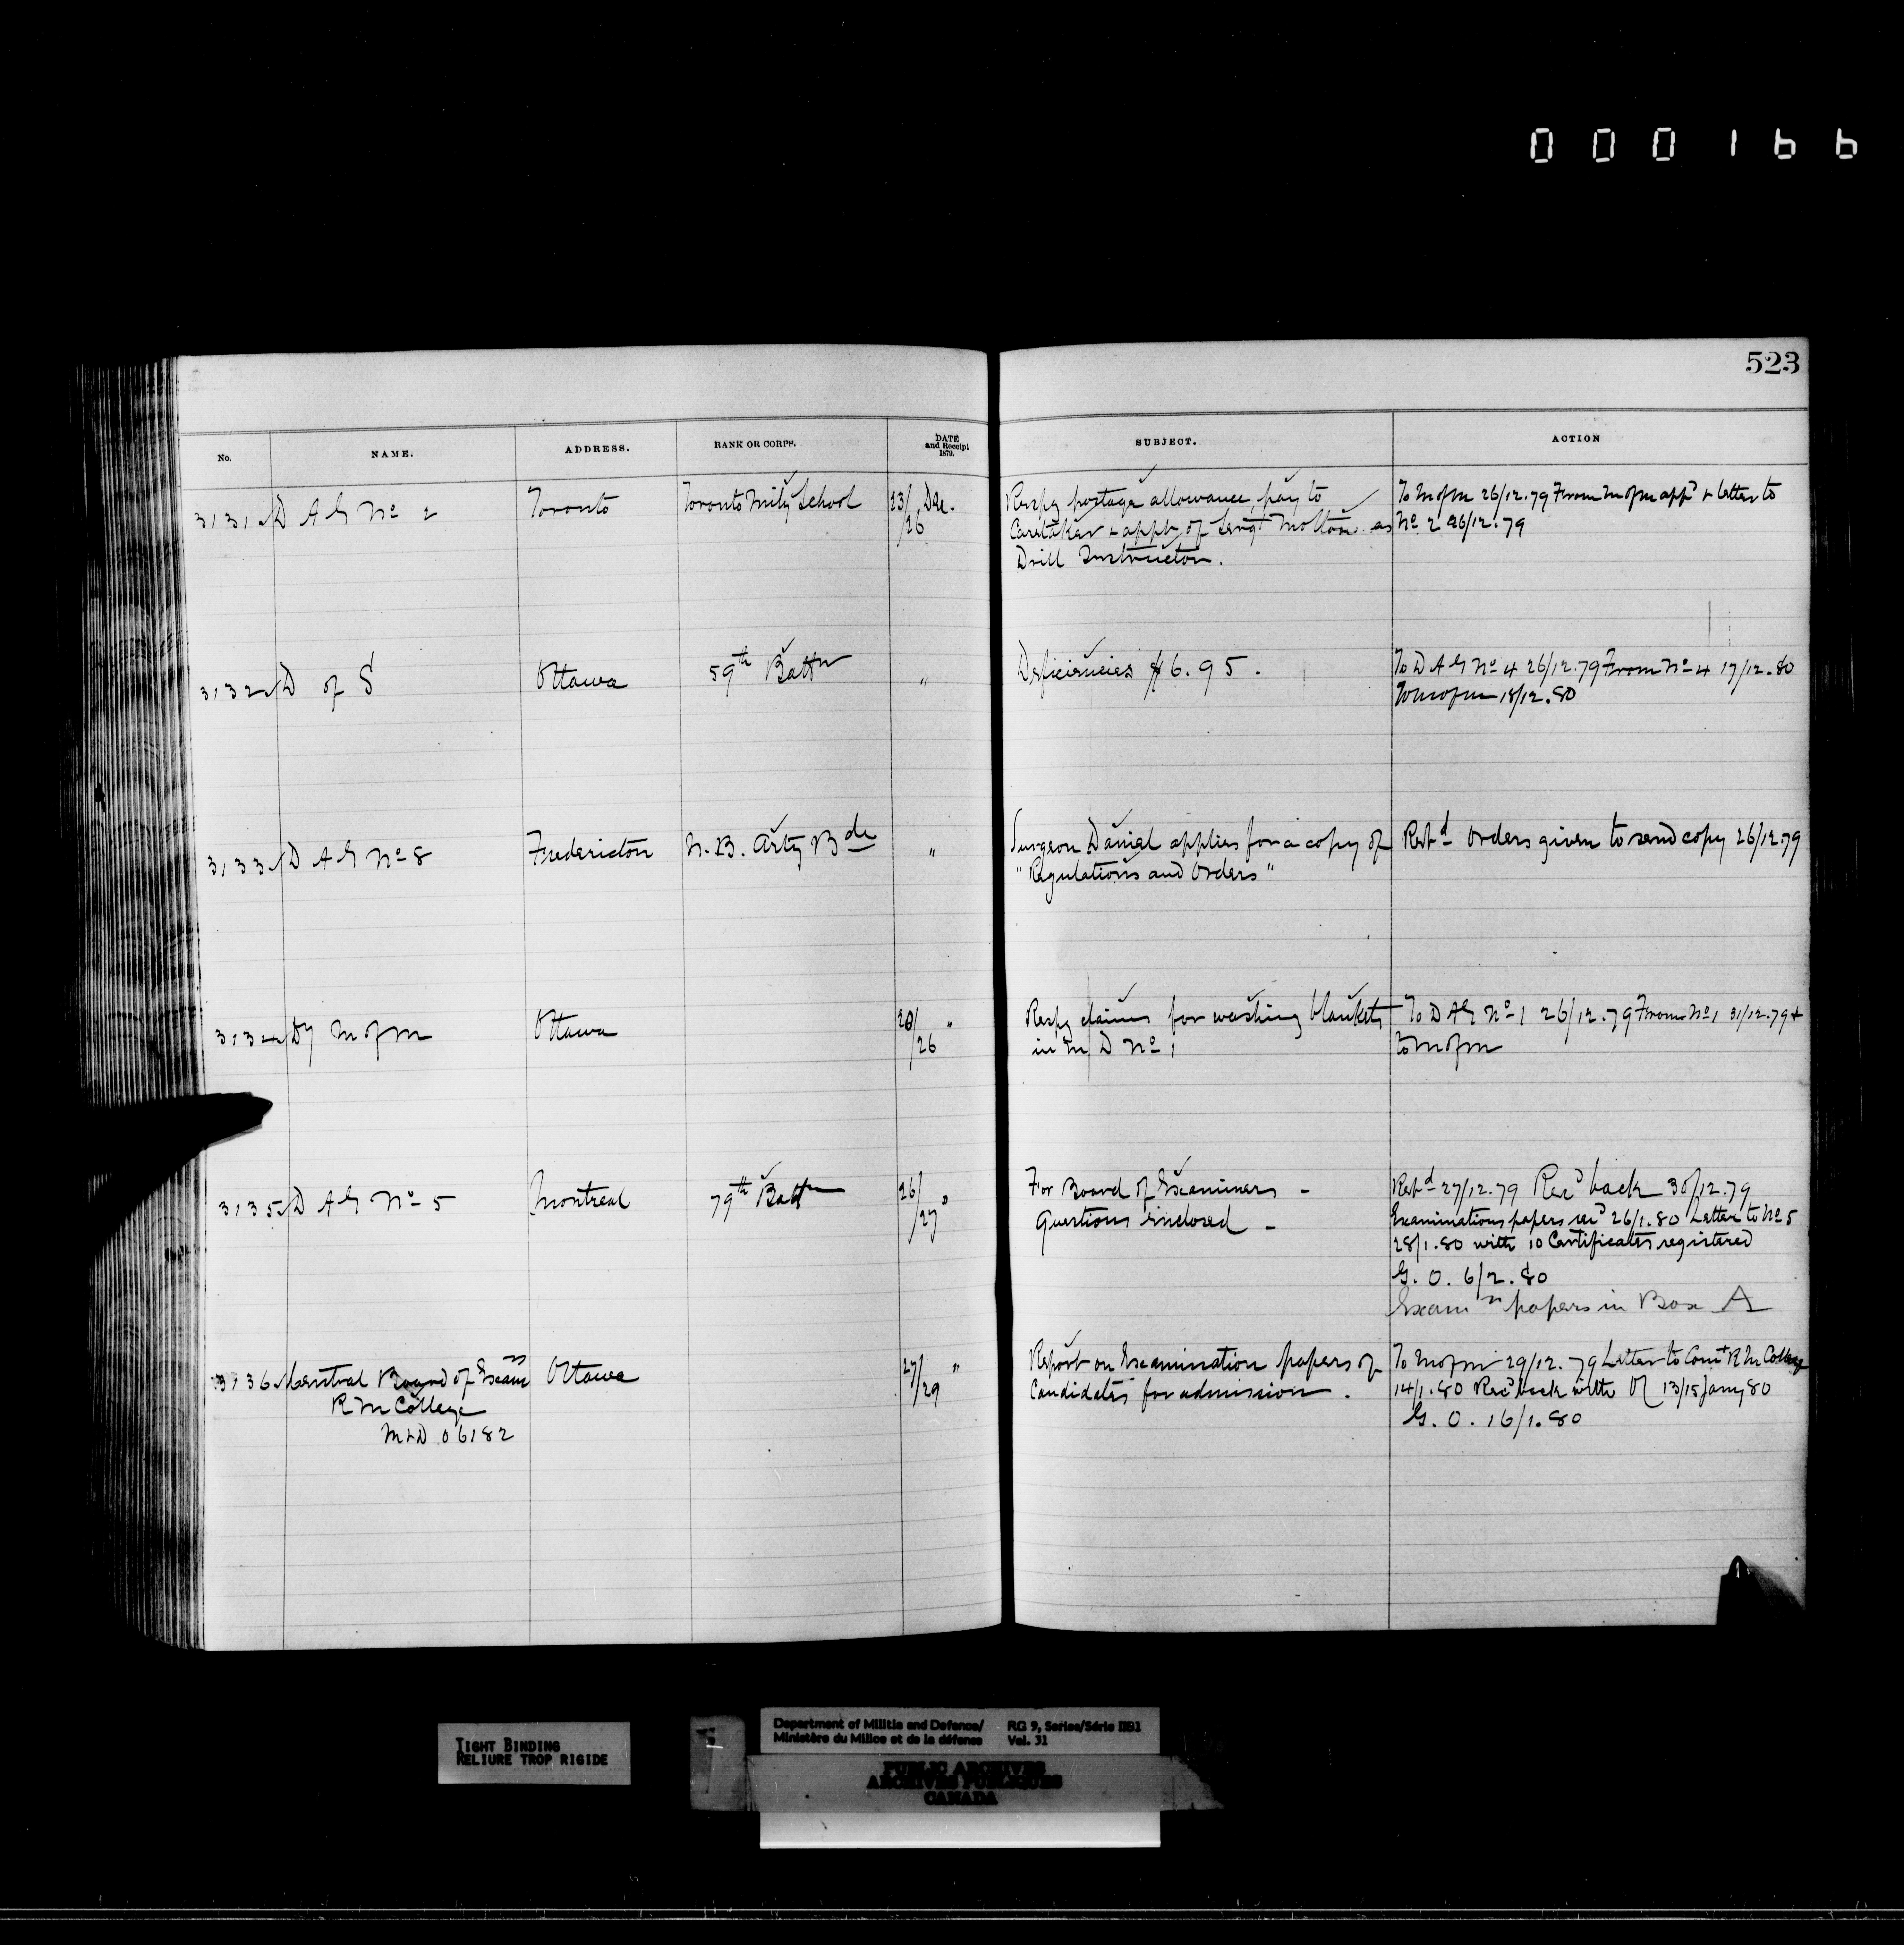 000166
523
No. NAME. ADDRESS. RANK OR CORPS. DATE and Receipt 1879. SUBJECT. ACTION
3131 D A G No 2 Toronto Toronto Mily School 23/26 Dec. Respg postage allowance, pay to To M of M 26/12.79 From M of M appd & letter to
Caretaker & appt of Sergt as No 2 26/12.79
Drill Instructor.
3132 D of S Ottawa 59th Battn " Deficiencies $6.95. To D A G No 4 26/12.79 From No 4 17/12.80
To M of M 18/12.80
3133 D A G No 8 Fredericton N. B. Arty Bde " Surgeon Daniel applies for a copy of Repd Orders given to send copy 26/12.79
"Regulations and Orders"
3134 Dy M of M Ottawa 20/26 " Respg claims for washing blankets To D A G No 1 26/12.79 From No 1 31/12.79 &
in M D No 1 to M of M
3135 D A G No 5 Montreal 79th Battn 26/27 " For Board of Examiners - Repd 27/12.79 Recd back 30/12.79
Questions enclosed - Examinations papers recd 26/1.80 Letter to No 5
28/1.80 with 10 Certificates registered
G. O. 6/2.80
Examn papers in Box A
3136 Central Board of Examrs Ottawa 27/29 " Report on Examination papers of To M of M 29/12.79 Letter to Comt R M College
R M College Candidates for admission. 14/1.80 Recd back with 13/15 Jany 80
M & D 06182 G. O. 16/1.80
TIGHT BINDING
RELIURE TROP RIGIDE
Department of Militia and Defence/ RG 9, Series/Série IIB1
Ministère du Milice et de la défense Vol. 31
PUBLIC ARCHIVES
ARCHIVES PUBLIQUES
CANADA